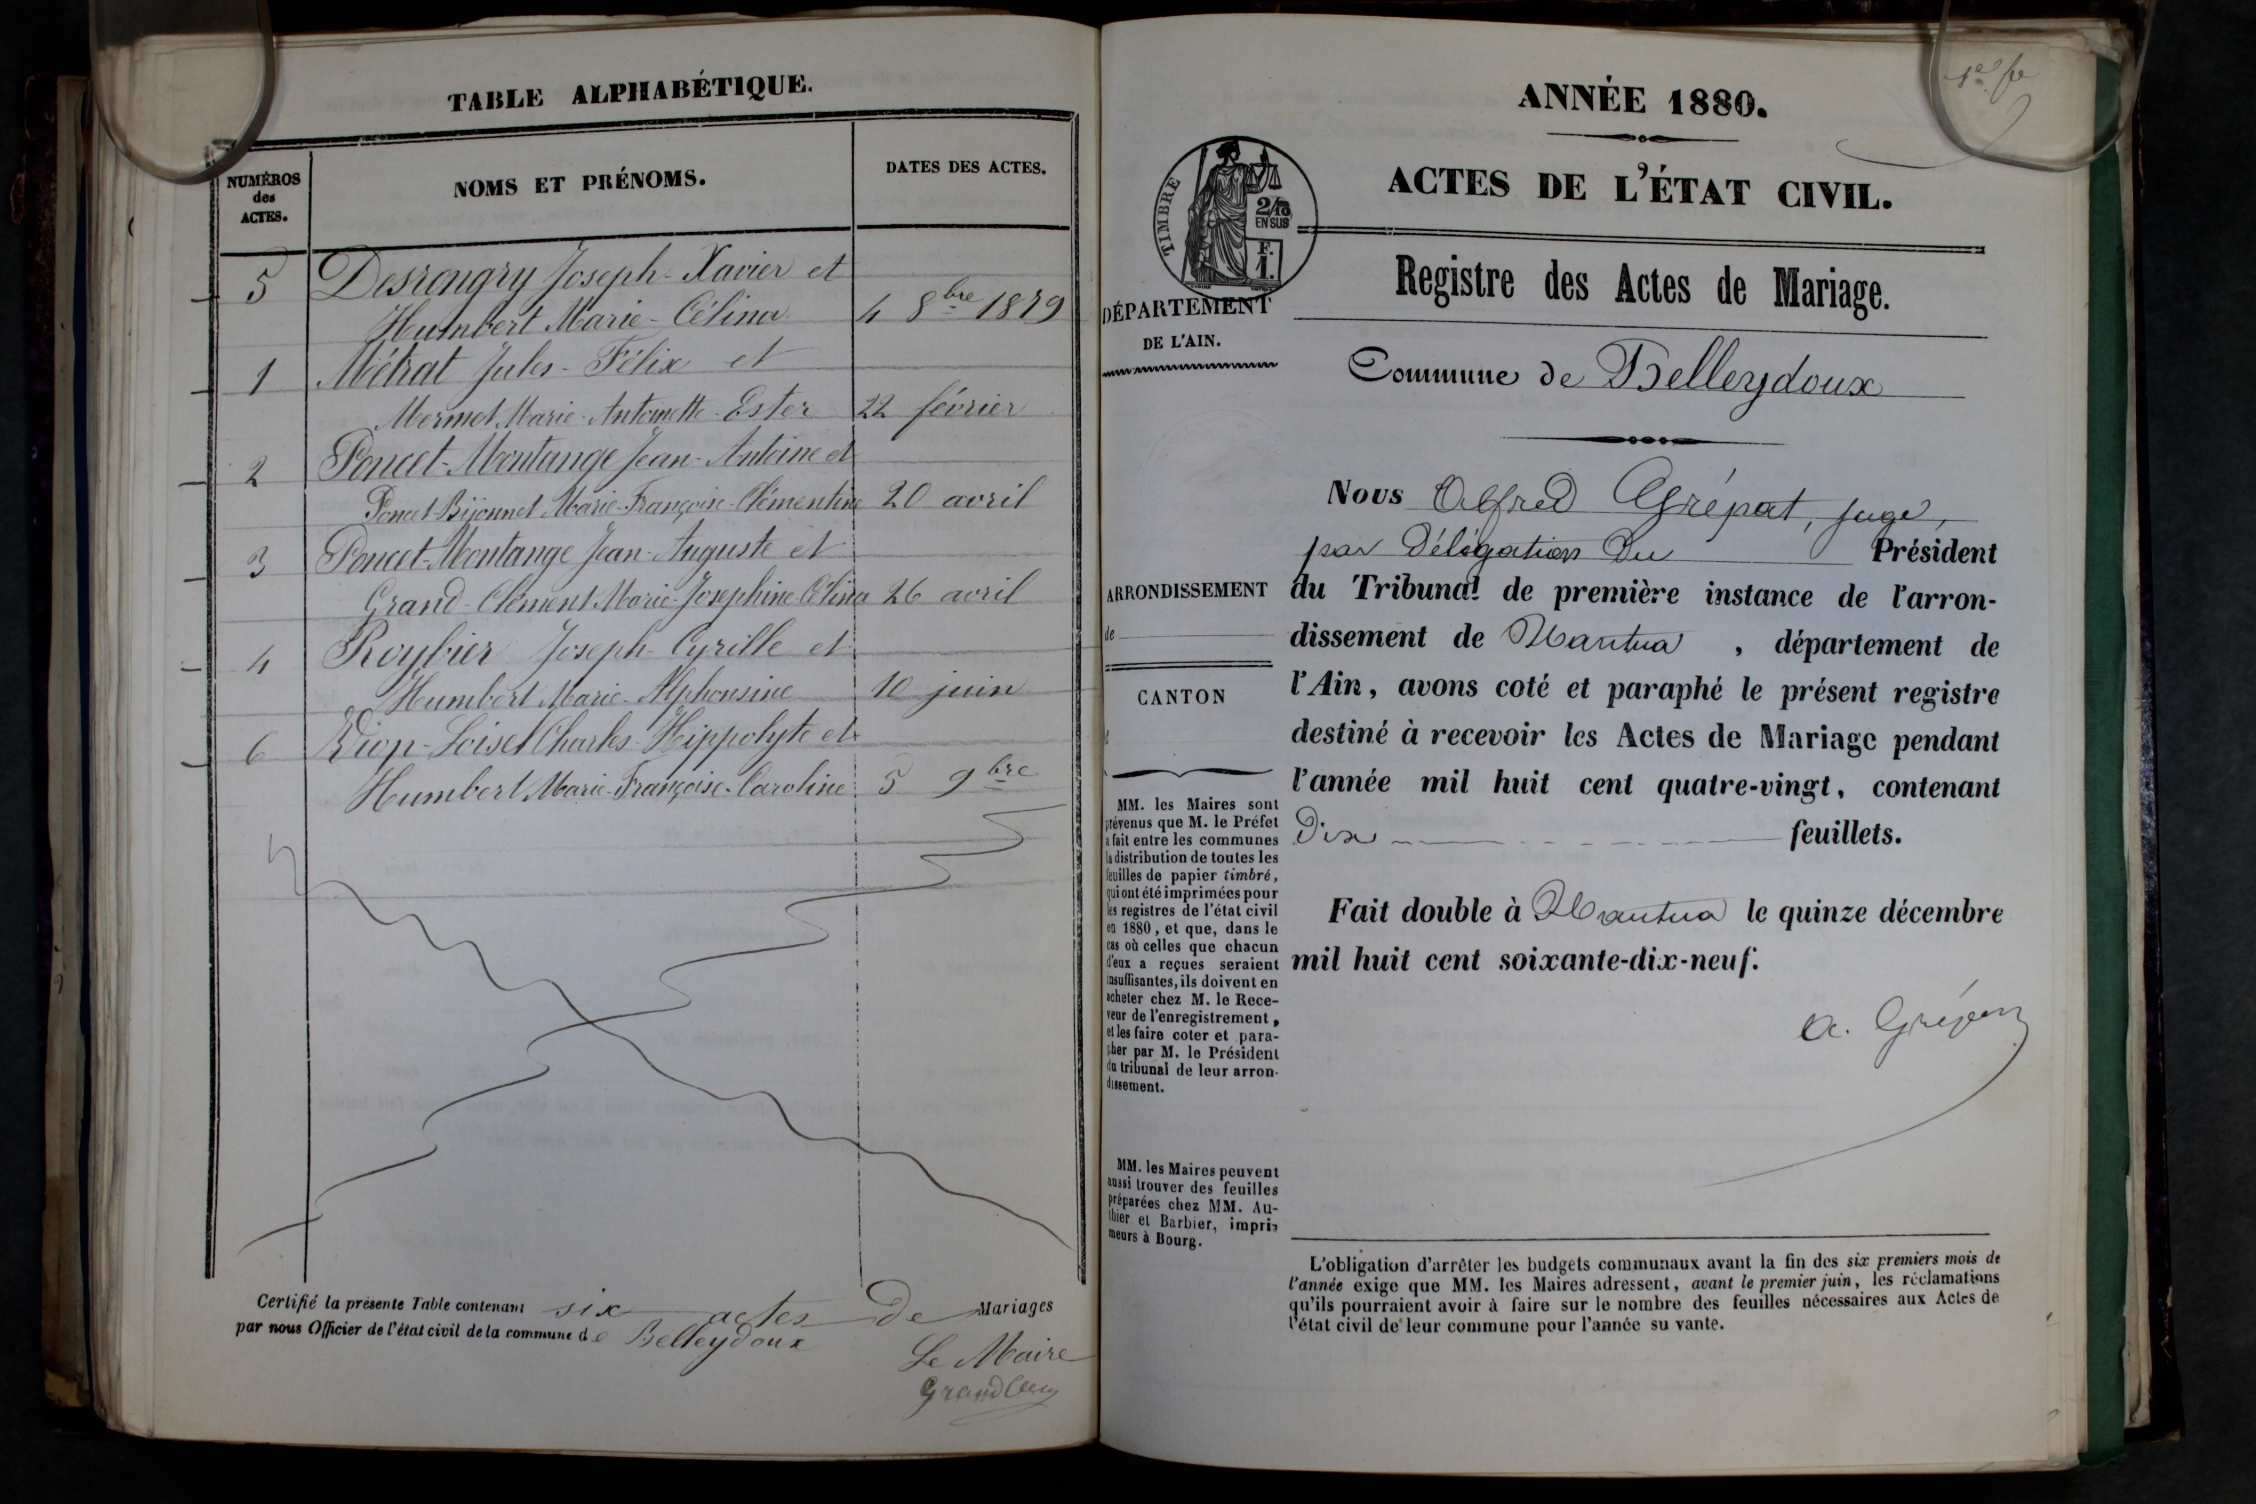 TABLE ALPHABÉTIQUE.
NUMÉROS
des
ACTES.
NOMS ET PRÉNOMS.
DATES DES ACTES.
5 Desrongry Joseph-Xavier et
Humbert Marie-Célina 4 8bre 1879
1 Métrat Jules-Félix et
Mermet Marie-Antoinette-Ester 22 février
2 Poncet-Montange Jean-Antoine et
Poncet-Bijonnet Marie-Françoise-Clémentine 20 avril
3 Poncet-Montange Jean-Auguste et
Grand-Clément Marie-Josephine Célina 26 avril
4 Roybier Joseph-Cyrille et
Humbert Marie-Alphonsine 10 juin
6 Vion-Loisel Charles-Hippolyte et
Humbert Marie-Françoise-Caroline 5 9bre
Certifié la présente Table contenant six actes de Mariages
par nous Officier de l'état civil de la commune de Belleydoux
Le Maire
ANNÉE 1880.
ACTES DE L'ÉTAT CIVIL.
TIMBRE
2/10
EN SUS
F.
1.
Registre des Actes de Mariage.
DÉPARTEMENT
DE L'AIN.
Commune de Belleydoux
Nous Alfred Grépat, juge,
par Délégation Du Président
du Tribunal de première instance de l'arron-
dissement de Nantua, département de
l'Ain, avons coté et paraphé le présent registre
destiné à recevoir les Actes de Mariage pendant
l'année mil huit cent quatre-vingt, contenant
Dix feuillets.
Fait double à Nantua le quinze décembre
mil huit cent soixante-dix-neuf.
ARRONDISSEMENT
de
CANTON
MM. les Maires sont
prévenus que M. le Préfet
a fait entre les communes
la distribution de toutes les
feuilles de papier timbré,
qui ont été imprimées pour
les registres de l'état civil
en 1880, et que, dans le
cas où celles que chacun
d'eux a reçues seraient
insuffisantes, ils doivent en
acheter chez M. le Rece-
veur de l'enregistrement,
et les faire coter et para-
pher par M. le Président
du tribunal de leur arron-
dissement.
MM. les Maires peuvent
aussi trouver des feuilles
préparées chez MM. Au-
thier et Barbier, impri-
meurs à Bourg.
L'obligation d'arrêter les budgets communaux avant la fin des six premiers mois de
l'année exige que MM. les Maires adressent, avant le premier juin, les réclamations
qu'ils pourraient avoir à faire sur le nombre des feuilles nécessaires aux Actes de
l'état civil de leur commune pour l'année su vante.